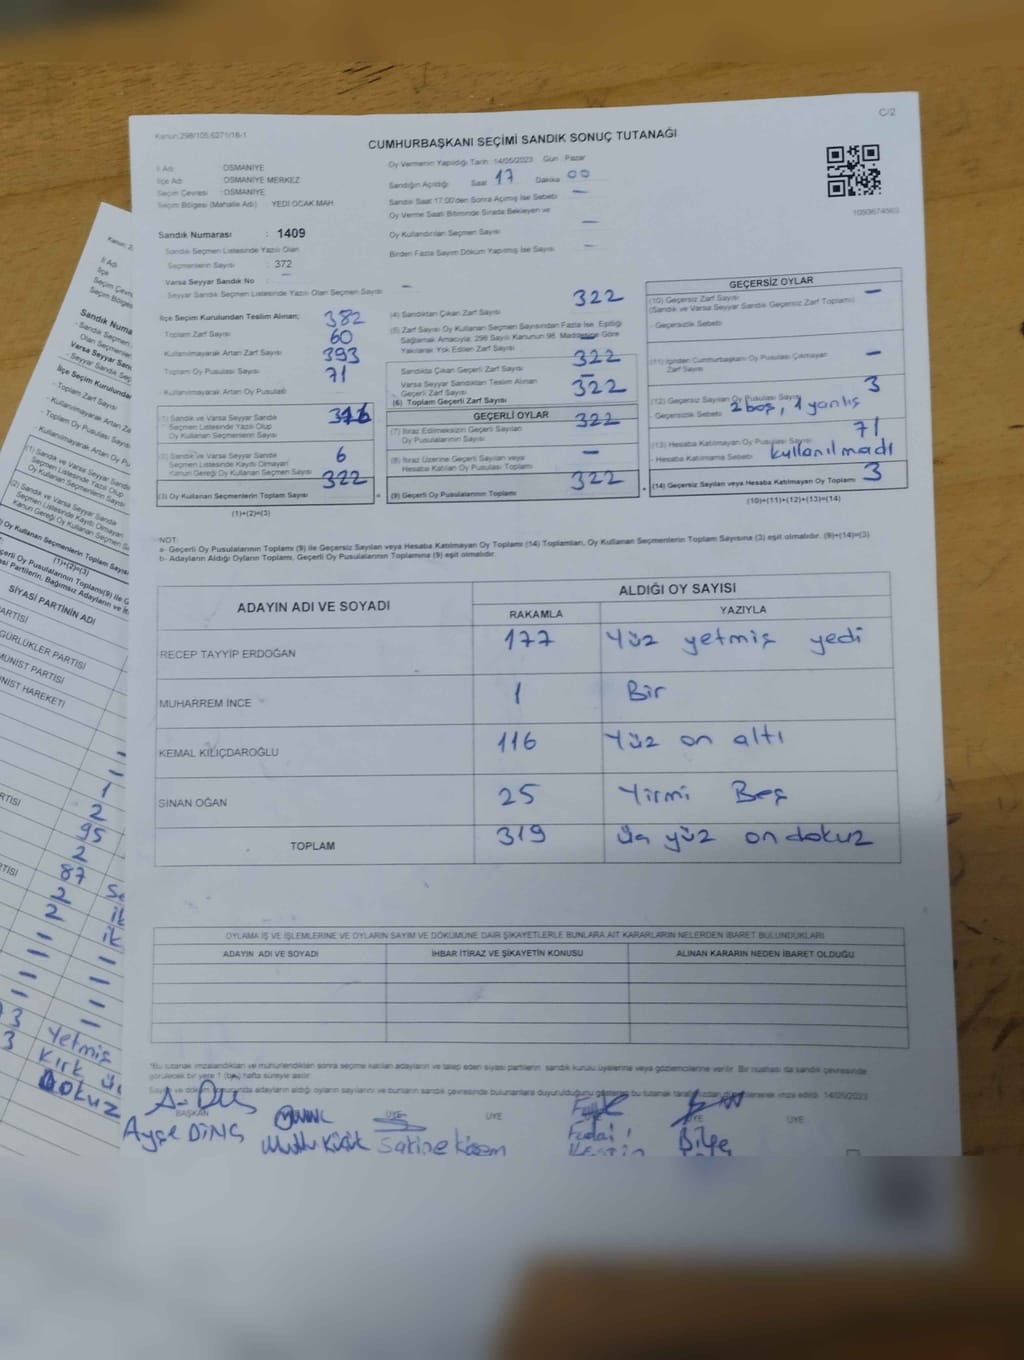 Kanun:298/105;6271/16-1
C/2
CUMHURBAŞKANI SEÇİMİ SANDIK SONUÇ TUTANAĞI
İl Adı : OSMANİYE
İlçe Adı : OSMANİYE MERKEZ
Seçim Çevresi : OSMANİYE
Seçim Bölgesi (Mahalle Adı) YEDİ OCAK MAH.
Oy Vermenin Yapıldığı Tarih :14/05/2023 Gün : Pazar
Sandığın Açıldığı Saat 17 Dakika 00
Sandık Saat 17:00'den Sonra Açılmış İse Sebebi –
Oy Verme Saati Bitiminde Sırada Bekleyen ve
Oy Kullandırılan Seçmen Sayısı –
Birden Fazla Sayım Döküm Yapılmış İse Sayısı –
1093674563
Sandık Numarası : 1409
Sandık Seçmen Listesinde Yazılı Olan
Seçmenlerin Sayısı : 372
Varsa Seyyar Sandık No –
Seyyar Sandık Seçmen Listesinde Yazılı Olan Seçmen Sayısı –
İlçe Seçim Kurulundan Teslim Alınan;
Toplam Zarf Sayısı 382
Kullanılmayarak Artan Zarf Sayısı 60
Toplam Oy Pusulası Sayısı 393
Kullanılmayarak Artan Oy Pusulası 71
(1) Sandık ve Varsa Seyyar Sandık
Seçmen Listesinde Yazılı Olup
Oy Kullanan Seçmenlerin Sayısı 316
(2) Sandık ve Varsa Seyyar Sandık
Seçmen Listesinde Kaydı Olmayan
Kanun Gereği Oy Kullanan Seçmen Sayısı 6
(3) Oy Kullanan Seçmenlerin Toplam Sayısı 322
(1)+(2)=(3)
(4) Sandıktan Çıkan Zarf Sayısı 322
(5) Zarf Sayısı Oy Kullanan Seçmen Sayısından Fazla İse, Eşitliği
Sağlamak Amacıyla; 298 Sayılı Kanunun 98. Maddesine Göre
Yakılarak Yok Edilen Zarf Sayısı –
Sandıkta Çıkan Geçerli Zarf Sayısı 322
Varsa Seyyar Sandıktan Teslim Alınan
Geçerli Zarf Sayısı –
(6) Toplam Geçerli Zarf Sayısı 322
GEÇERLİ OYLAR
(7) İtiraz Edilmeksizin Geçerli Sayılan
Oy Pusulalarının Sayısı 322
(8) İtiraz Üzerine Geçerli Sayılan veya
Hesaba Katılan Oy Pusulası Toplamı –
= (9) Geçerli Oy Pusulalarının Toplamı 322
GEÇERSİZ OYLAR
(10) Geçersiz Zarf Sayısı –
(Sandık ve Varsa Seyyar Sandık Geçersiz Zarf Toplamı)
- Geçersizlik Sebebi
(11) İçinden Cumhurbaşkanı Oy Pusulası Çıkmayan
Zarf Sayısı –
(12) Geçersiz Sayılan Oy Pusulası Sayısı 3
- Geçersizlik Sebebi 2 boş, 1 yanlış
(13) Hesaba Katılmayan Oy Pusulası Sayısı 71
- Hesaba Katılmama Sebebi kullanılmadı
+ (14) Geçersiz Sayılan veya Hesaba Katılmayan Oy Toplamı 3
(10)+(11)+(12)+(13)=(14)
NOT:
a- Geçerli Oy Pusulalarının Toplamı (9) ile Geçersiz Sayılan veya Hesaba Katılmayan Oy Toplamı (14) Toplamları, Oy Kullanan Seçmenlerin Toplam Sayısına (3) eşit olmalıdır. (9)+(14)=(3)
b- Adayların Aldığı Oyların Toplamı, Geçerli Oy Pusulalarının Toplamına (9) eşit olmalıdır.
ADAYIN ADI VE SOYADI ALDIĞI OY SAYISI
RAKAMLA YAZIYLA
RECEP TAYYİP ERDOĞAN 177 Yüz yetmiş yedi
MUHARREM İNCE 1 Bir
KEMAL KILIÇDAROĞLU 116 Yüz on altı
SİNAN OĞAN 25 Yirmi Beş
TOPLAM 319 Üç yüz on dokuz
OYLAMA İŞ VE İŞLEMLERİNE VE OYLARIN SAYIM VE DÖKÜMÜNE DAİR ŞİKAYETLERLE BUNLARA AİT KARARLARIN NELERDEN İBARET BULUNDUKLARI
ADAYIN ADI VE SOYADI İHBAR İTİRAZ VE ŞİKAYETİN KONUSU ALINAN KARARIN NEDEN İBARET OLDUĞU
BAŞKAN ÜYE ÜYE ÜYE ÜYE
Ayşe DİNÇ Mutlu Küçük Sakine Kösem Fedai Bilge
Kanun:
İl Adı
İlçe
Seçim Çevre
Seçim Bölgesi
Sandık Numa
- Sandık Seçmen
Olan Seçmenlerin
Varsa Seyyar San
- Seyyar Sandık Seç
İlçe Seçim Kurulundan
- Toplam Zarf Sayısı
- Kullanılmayarak Artan Za
- Toplam Oy Pusulası Sayısı
- Kullanılmayarak Artan Oy Pu
(1) Sandık ve Varsa Seyyar Sandık
Seçmen Listesinde Yazılı Olup
Oy Kullanan Seçmenlerin Sayısı
(2) Sandık ve Varsa Seyyar Sandık
Seçmen Listesinde Kaydı Olmayan
Kanun Gereği Oy Kullanan Seçmen S
Oy Kullanan Seçmenlerin Toplam Sayısı
(1)+(2)=(3)
SİYASİ PARTİNİN ADI
PARTİSİ
GÜRLÜKLER PARTİSİ
MÜNİST PARTİSİ
NİST HAREKETİ
–
–
1
2
95
2
87 Se
2 ik
2 ik
3 Yetmiş
3 Kırk üç
Dokuz